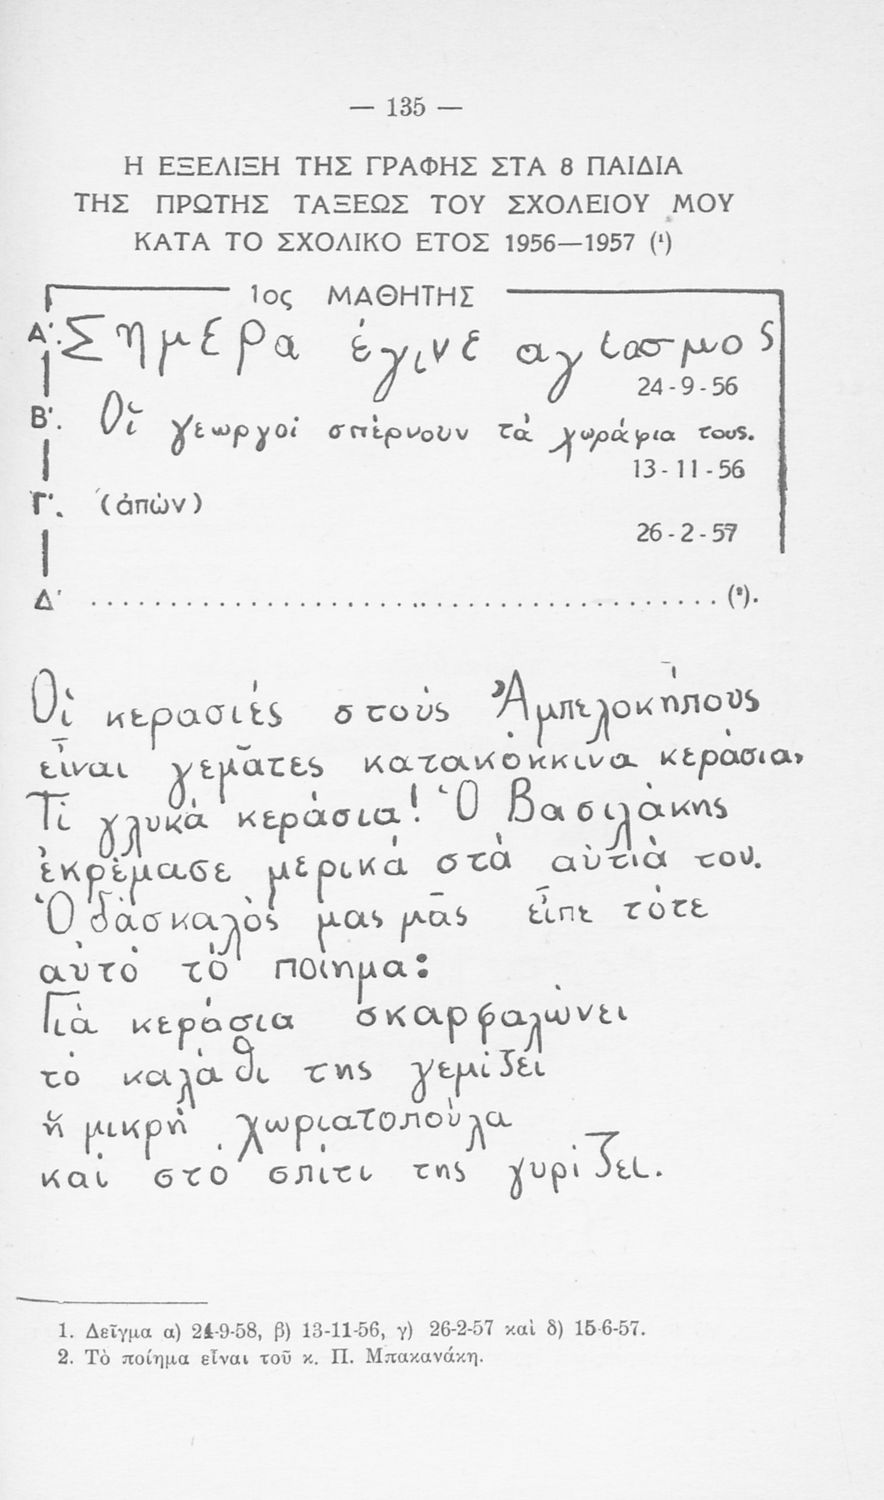 — 135 —
Η ΕΞΕΛΙΞΗ ΤΗΣ ΓΡΑΦΗΣ ΣΤΑ 8 ΠΑΙΔΙΑ
ΤΗΣ ΠΡΩΤΗΣ ΤΑΞΕΩΣ ΤΟΥ ΣΧΟΛΕΙΟΥ ΜΟΥ
ΚΑΤΑ ΤΟ ΣΧΟΛΙΚΟ ΕΤΟΣ 1956—1957 (¹)
1ος ΜΑΘΗΤΗΣ
Α'. Σημερα έγινε αγιασμος
24-9-56
Β'. Οἵ γεωργοί σπέρνουν τά χωράφια τους.
13-11-56
Γ'. (ἀπών)
26-2-57
Δ' ........................................ (²).
Οἱ κερασιές στούς Ἀμπελοκήπους
εἶναι γεμᾶτες κατακόκκινα κεράσια,
Τί γλυκά κεράσια! Ὁ Βασιλάκης
ἐκρέμασε μερικά στά αὐτιά του.
Ὁ δάσκαλός μας μᾶς εἶπε τότε
αυτό τό ποιημα:
Γιά κεράσια σκαρφαλώνει
τό καλάθι της γεμίζει
ἥ μικρή χωριατοπούλα
καί στό σπίτι της γυρίζει.
1. Δεῖγμα α) 24-9-58, β) 13-11-56, γ) 26-2-57 καὶ δ) 15-6-57.
2. Τὸ ποίημα εἶναι τοῦ κ. Π. Μπακανάκη.